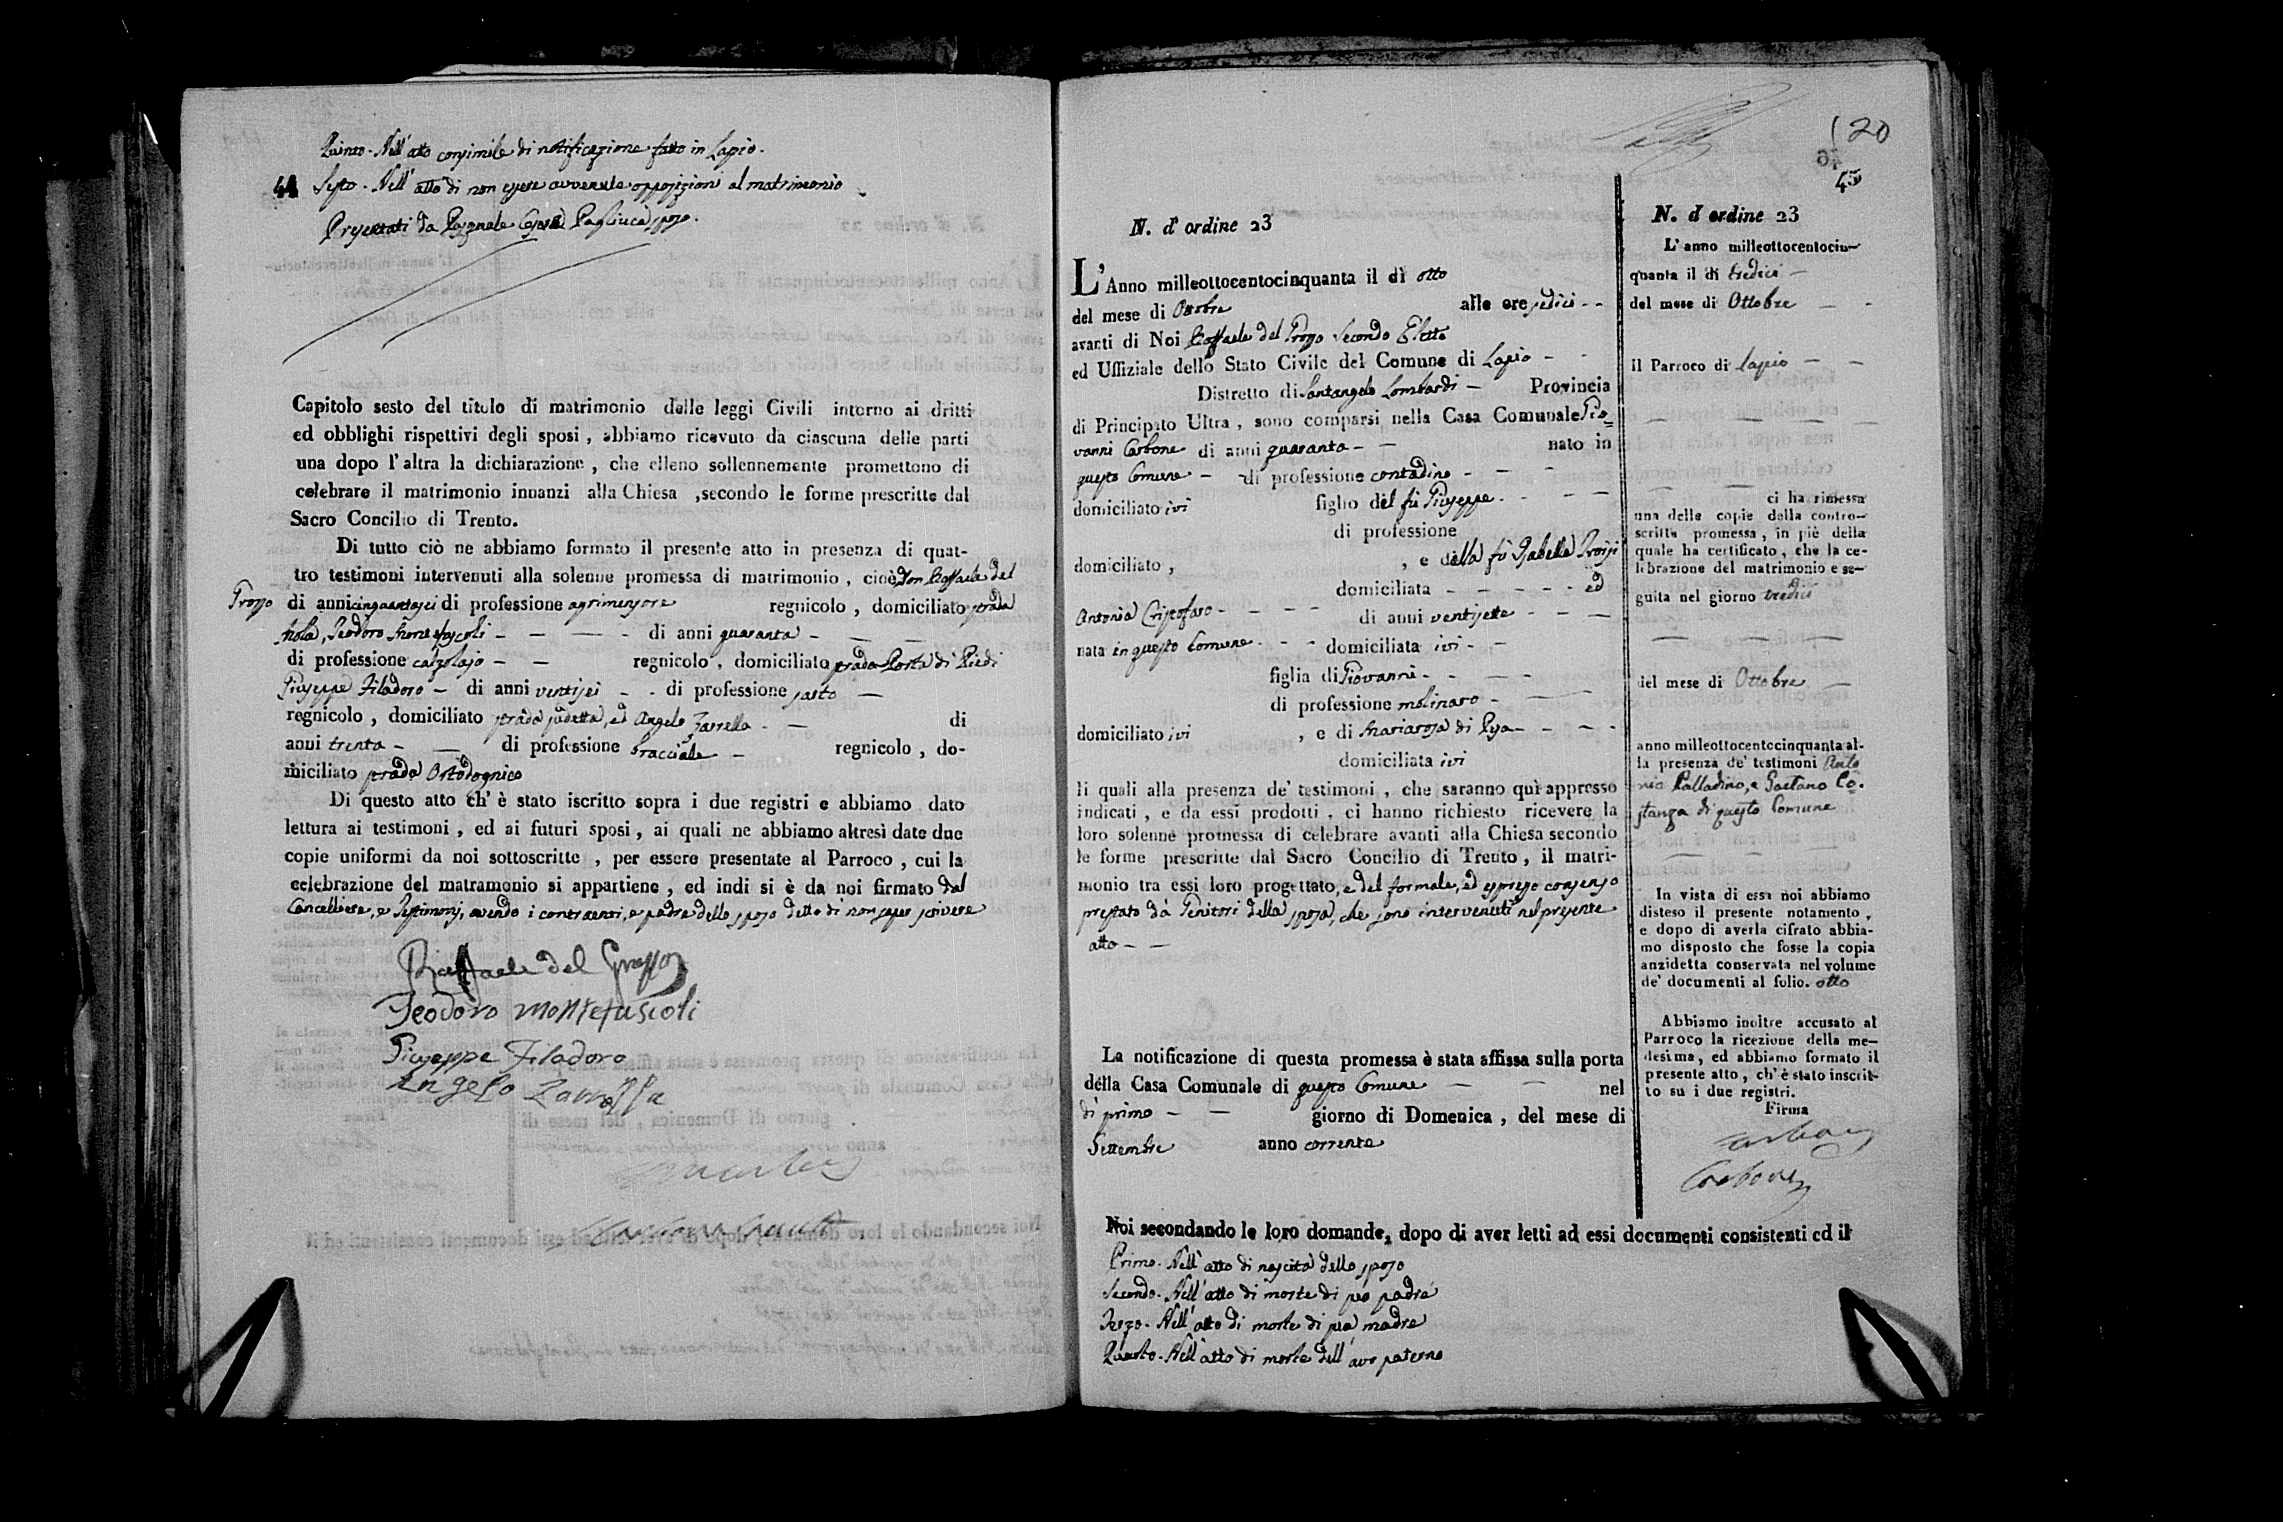 Quinto. Nell'atto consimile di notificazione fatto in Lapio.
44 Sesto. Nell'atto di non essere avvenute opposizioni al matrimonio
Presentati da Pasquale Cesare Pagliuca sposo.
Capitolo sesto del titulo di matrimonio delle leggi Civili intorno ai dritti
ed obblighi rispettivi degli sposi, abbiamo ricevuto da ciascuna delle parti
una dopo l'altra la dichiarazione, che elleno sollennemente promettono di
celebrare il matrimonio innanzi alla Chiesa, secondo le forme prescritte dal
Sacro Concilio di Trento.
Di tutto ciò ne abbiamo formato il presente atto in presenza di quat-
tro testimoni intervenuti alla solenne promessa di matrimonio, cioè Don Raffaele del
Grosso di anni cinquantasei di professione agrimensore regnicolo, domiciliato strada
Nola, Teodoro Montefuscoli di anni quaranta
di professione calzolajo regnicolo, domiciliato strada Porta di Piedi
Giuseppe Filadoro di anni ventisei di professione sarto
regnicolo, domiciliato strada sudetta, ed Angelo Zarrella di
anni trenta di professione bracciale regnicolo, do-
miciliato strada Ortodognico
Di questo atto ch'è stato iscritto sopra i due registri e abbiamo dato
lettura ai testimoni, ed ai futuri sposi, ai quali ne abbiamo altresì date due
copie uniformi da noi sottoscritte, per essere presentate al Parroco, cui la
celebrazione del matramonio si appartiene, ed indi si è da noi firmato dal
Cancelliere, e Testimonj, avendo i contraenti, e padre dello sposo detto di non saper scrivere
Raffaele del Grosso
Teodoro Montefuscoli
Giuseppe Filadoro
Angelo Zarrella
120
46
45
N. d'ordine 23
L'Anno milleottocentocinquanta il dì otto
del mese di Ottobre alle ore sedici
avanti di Noi Raffaele del Grosso Secondo Eletto
ed Uffiziale dello Stato Civile del Comune di Lapio
Distretto di Santangelo Lombardi Provincia
di Principato Ultra, sono comparsi nella Casa Comunale Gio=
vanni Carbone di anni quaranta nato in
questo Comune di professione contadino
domiciliato ivi figlio del fù Giuseppe
di professione
domiciliato, , e della fù Isabella Troisi
domiciliata ed
Antonia Cristofaro di anni ventisette
nata in questo Comune domiciliata ivi
figlia di Giovanni
di professione molinaro
domiciliato ivi , e di Mariarosa di Pisa
domiciliata ivi
li quali alla presenza de' testimoni, che saranno quì appresso
indicati, e da essi prodotti, ci hanno richiesto ricevere la
loro solenne promessa di celebrare avanti alla Chiesa secondo
le forme prescritte dal Sacro Concilio di Trento, il matri-
monio tra essi loro progettato, e del formale, ed espresso consenso
prestato da Genitori della sposa, che sono intervenuti nel presente
atto
La notificazione di questa promessa è stata affissa sulla porta
della Casa Comunale di questo Comune nel
dì primo giorno di Domenica, del mese di
Settembre anno corrente
Noi secondando le loro domande, dopo di aver letti ad essi documenti consistenti ed il
Primo. Nell'atto di nascita dello sposo
Secondo. Nell'atto di morte di suo padre
Terzo. Nell'atto di morte di sua madre
Quarto. Nell'atto di morte dell'avo paterno
N. d'ordine 23
L'anno milleottocentocin-
quanta il dì tredici
del mese di Ottobre
il Parroco di Lapio
ci ha rimessa
una delle copie della contro-
scritta promessa, in piè della
quale ha certificato, che la ce-
librazione del matrimonio e se-
guita nel giorno tredici
del mese di Ottobre
anno milleottocentocinquanta al-
la presenza de' testimoni Anto
nio Palladino, e Gaetano Co=
stanza di questo Comune
In vista di essa noi abbiamo
disteso il presente notamento,
e dopo di averla cifrato abbia-
mo disposto che fosse la copia
anzidetta conservata nel volume
de' documenti al folio. otto
Abbiamo inoltre accusato al
Parroco la ricezione della me-
desima, ed abbiamo formato il
presente atto, ch'è stato inscrit-
to su i due registri.
Firma
Carbone